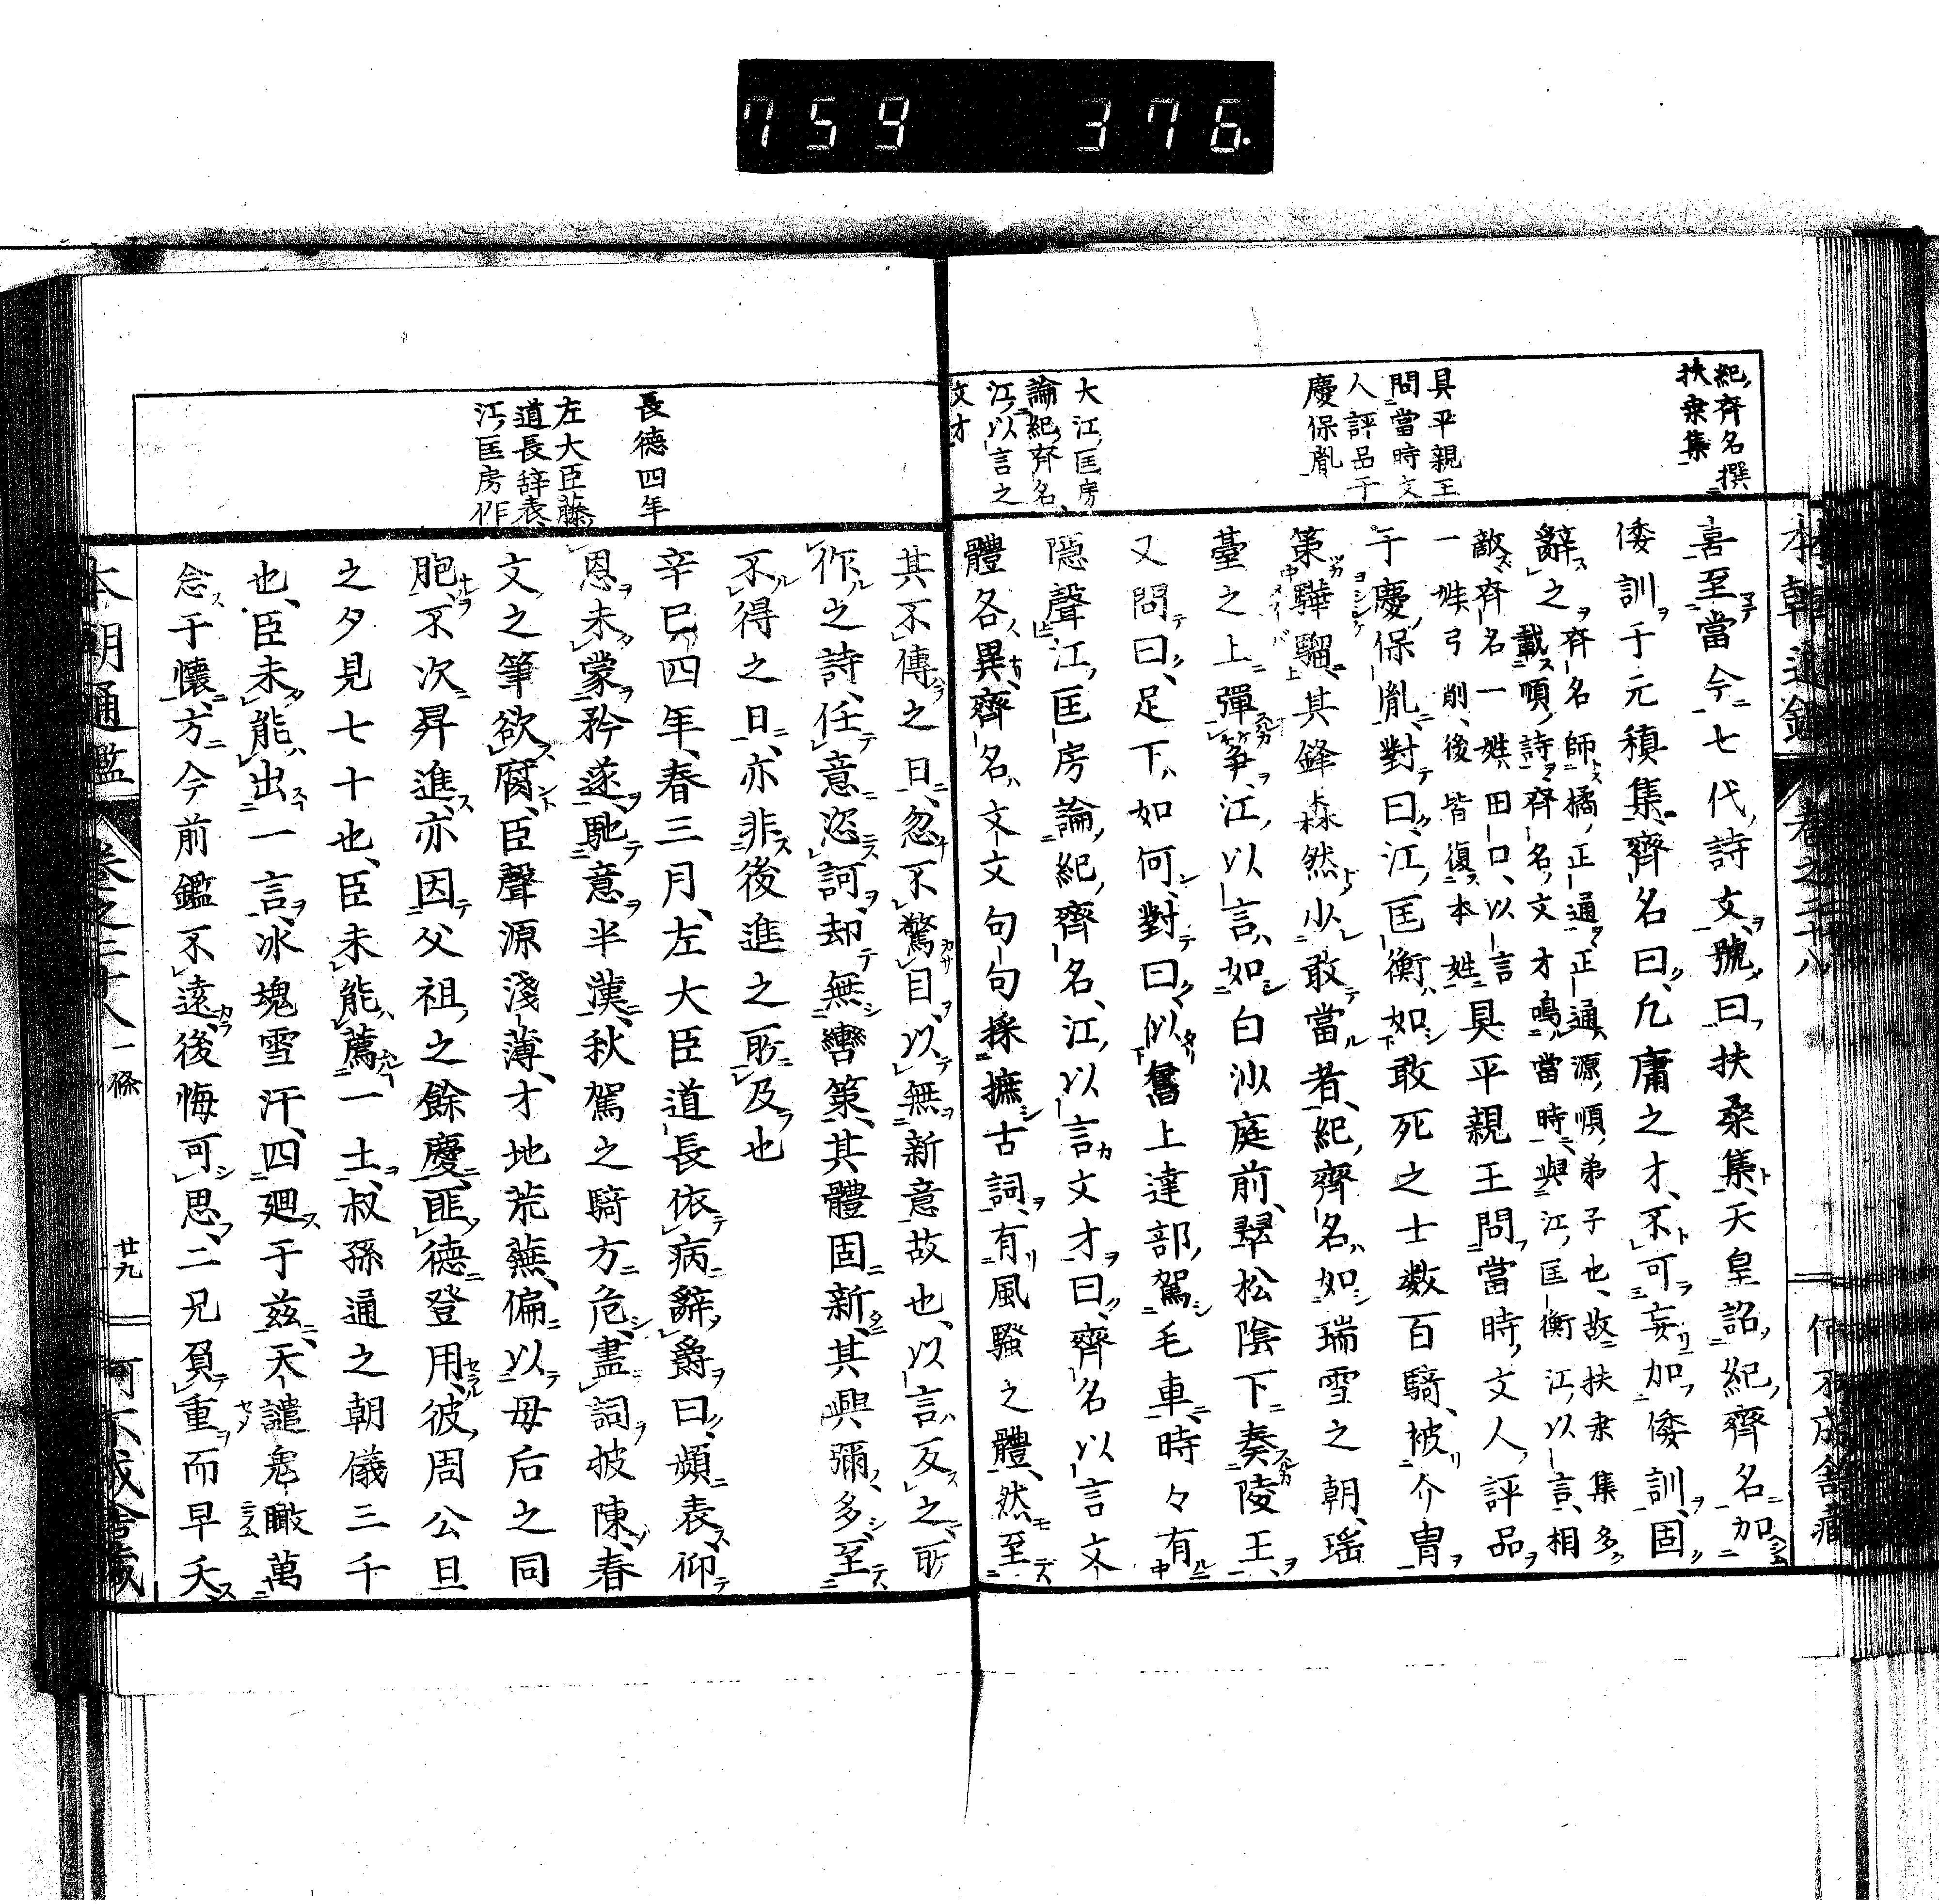 759 376.
紀齊名撰
扶桒集
具平親王
問當時文
人評品于
慶保胤
大江匡房
論紀齊名
江以言之
文才
喜至當今七代詩文號曰扶桒集天皇詔紀齊名加
倭訓于元稹集齊名曰凡庸之才不可妄加倭訓固
辭之
齊名師橘正通正通源順弟子也故扶桒集多
載順詩齊名文才鳴當時與江匡衡江以言相
敵齊名一姓田口以言
一姓弓削後皆復本姓
具平親王問當時文人評品
于慶保胤對曰江匡衡如敢死之士數百騎被介冑
策驊騮其鋒森然少敢當者紀齊名如瑞雪之朝瑶
臺之上彈箏江以言如白沙庭前翠松陰下奏陵王
又問曰足下如何對曰似舊上達部駕毛車時々有
隱聲江匡房論紀齊名江以言文才曰齊名以言文
體各異齊名文文句句採摭古詞有風騷之體然至
長德四年
左大臣藤
道長辞表
江匡房作
其不傳之日忽不驚目以無新意故也以言反之所
作之詩任意恣訶却無轡策其體固新其興彌多至
不得之日亦非後進之所及也
辛巳四年春三月左大臣道長依病辭爵曰頻表仰
恩未蒙矜遂馳意半漢秋駕之騎方危盡詞披陳春
文之筆欲腐臣聲源淺薄才地荒蕪偏以母后之同
胞不次昇進亦因父祖之餘慶匪德登用彼周公旦
之夕見七十也臣未能薦一士叔孫通之朝儀三千
也臣未能出一言冰塊雪汗四廻于茲天譴鬼瞰萬
念于懷方今前鑑不遠後悔可思二兄負重而早夭
本朝通鑑 卷之二十八 一條 廿九